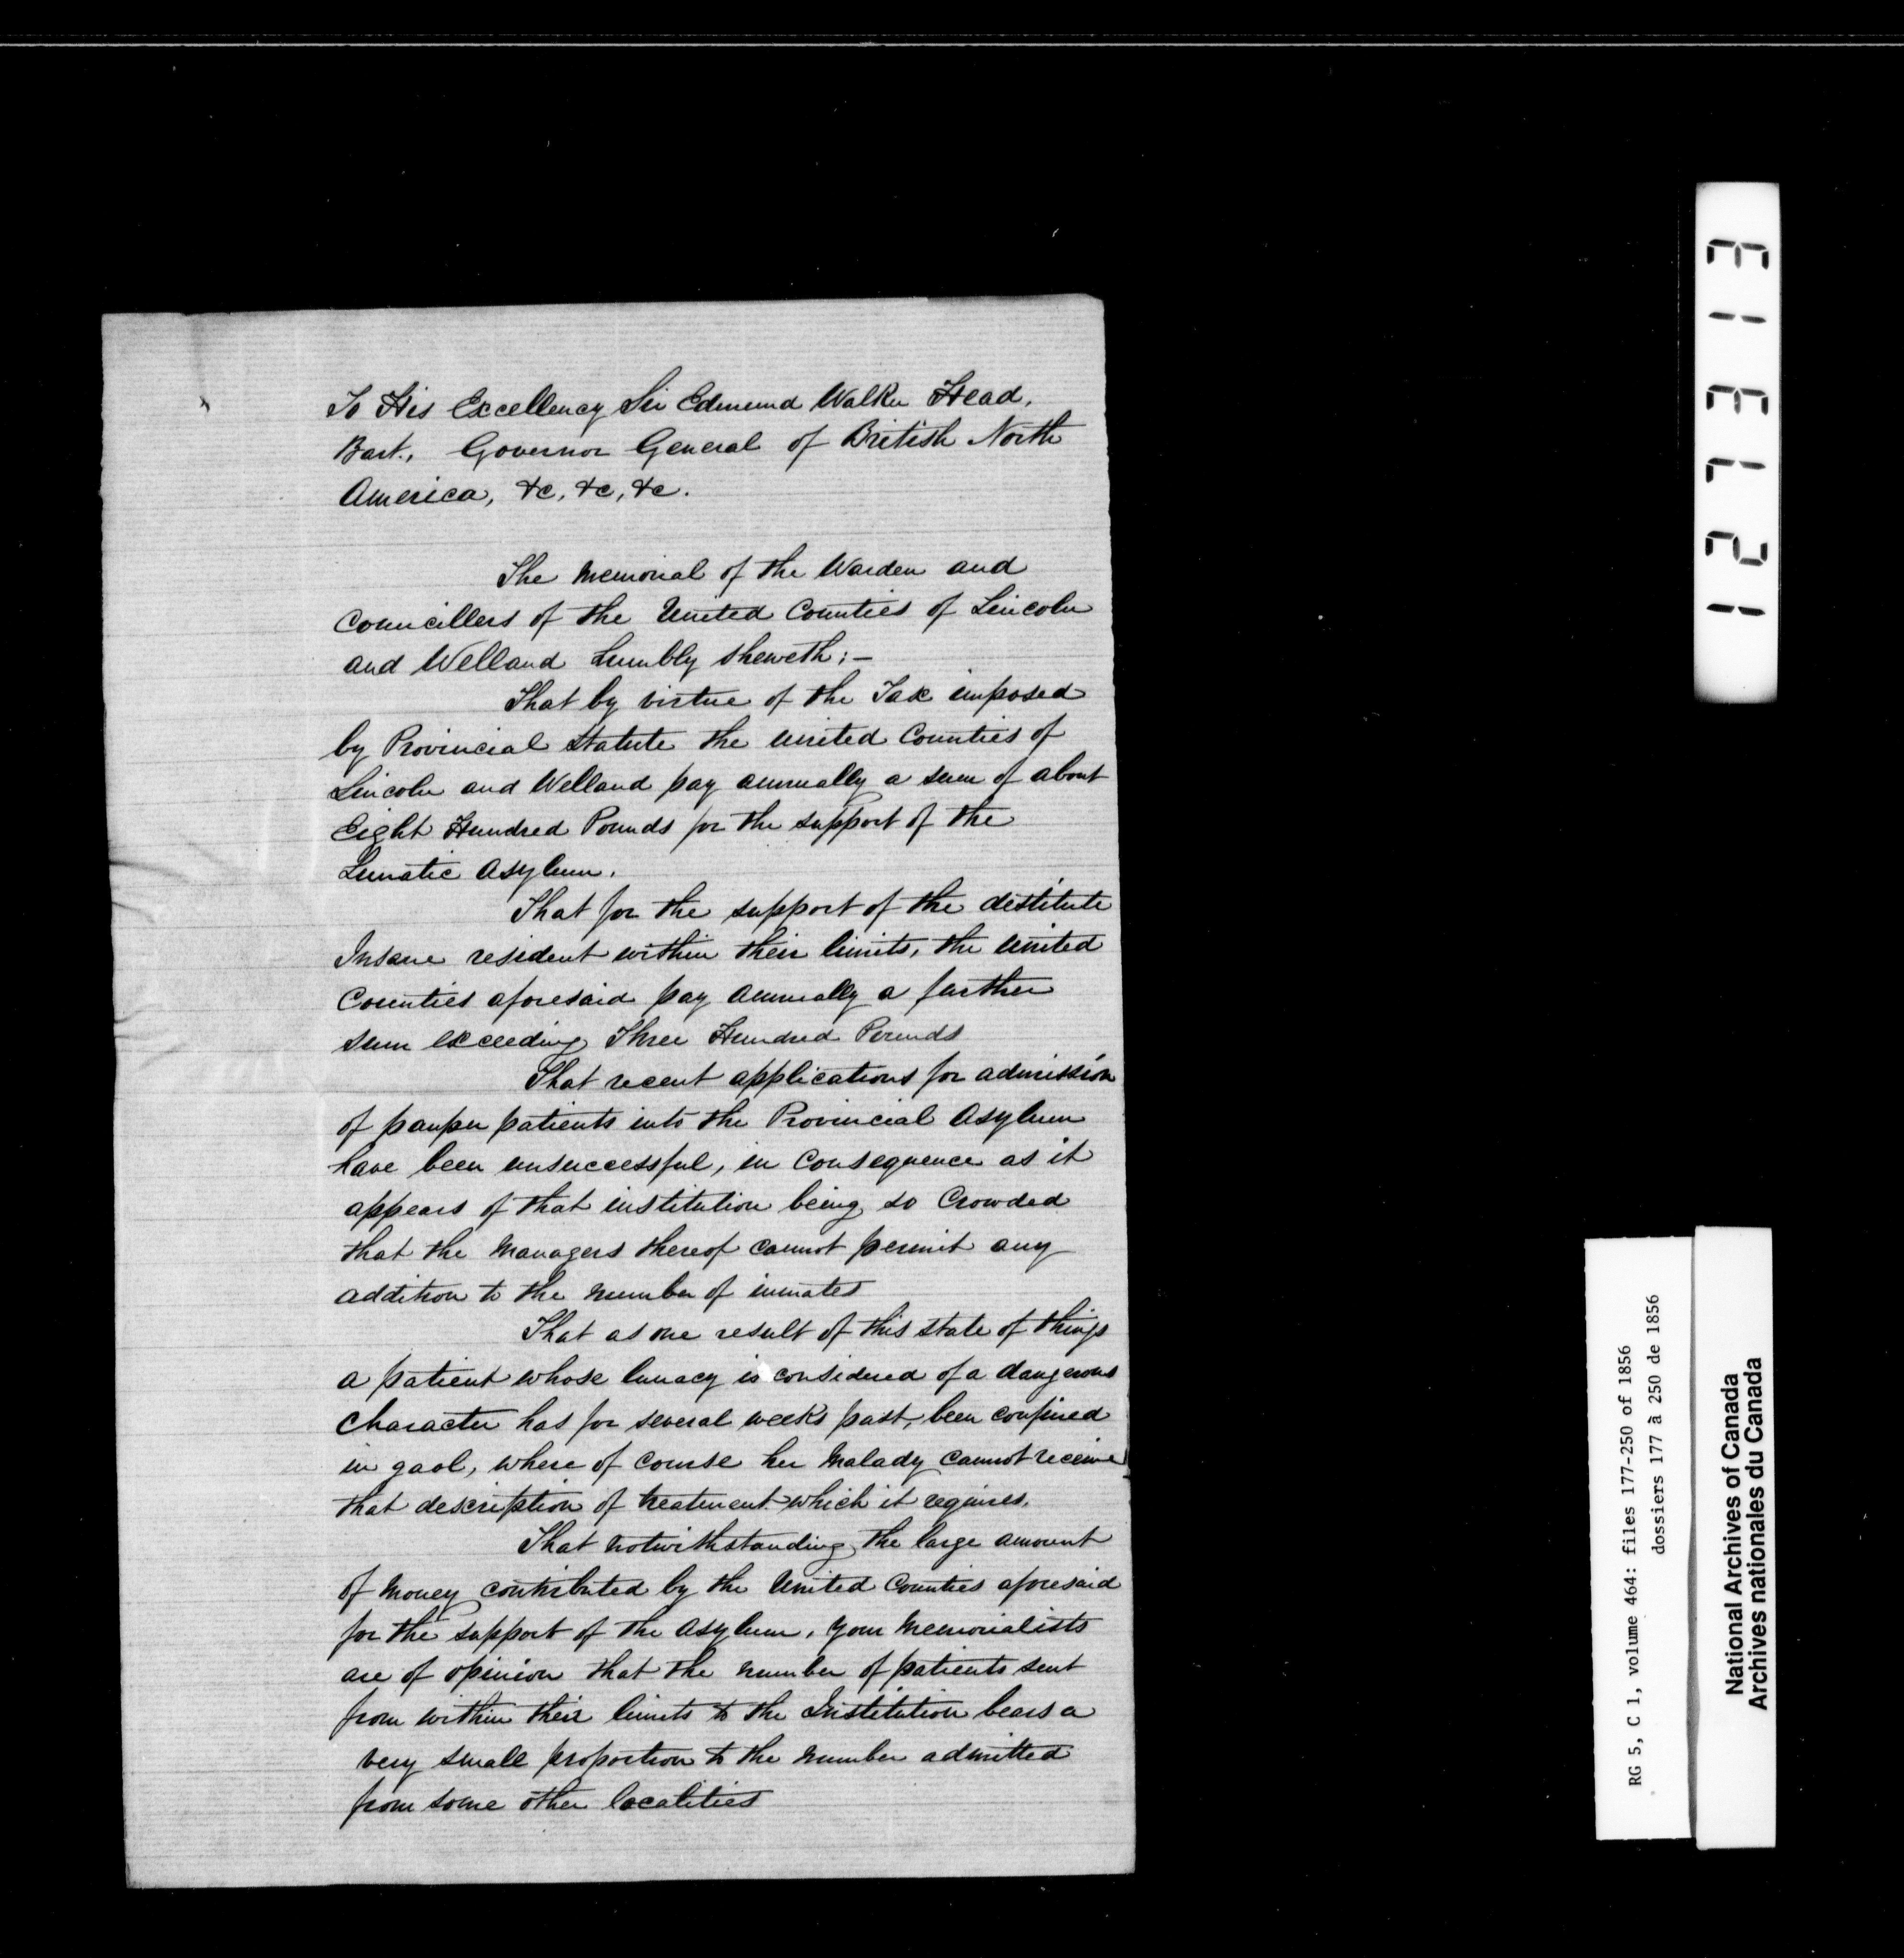 To His Excellency Sir Edmund Walker Head,
Bart., Governor General of British North
America, &c, &c, &c.
The Memorial of the Warden and
Councillers of the United Counties of Lincoln
and Welland humbly sheweth:—
That by virtue of the Tax imposed
by Provincial Statute the United Counties of
Lincoln and Welland pay annually a sum of about
Eight Hundred Pounds for the support of the
Lunatic Asylum.
That for the support of the destitute
Insane resident within their limits, the United
Counties aforesaid pay annually a further
sum exceeding Three Hundred Pounds
That recent applications for admission
of pauper patients into the Provincial Asylum
have been unsuccessful, in consequence as it
appears of that institution being so Crowded
that the Managers thereof cannot permit any
addition to the number of inmates
That as one result of this state of things
a patient whose lunacy is considered of a dangerous
Character has for several weeks past, been confined
in gaol, where of course her Malady cannot receive
that description of treatment which it requires.
That notwithstanding the large amount
of Money contributed by the United Counties aforesaid
for the support of the Asylum, your Memorialists
are of opinion that the number of patients sent
from within their limits to the Institution bears a
very small proportion to the number admitted
from some other localities
127313
RG 5, C 1, volume 464: files 177-250 of 1856
dossiers 177 à 250 de 1856
National Archives of Canada
Archives nationales du Canada